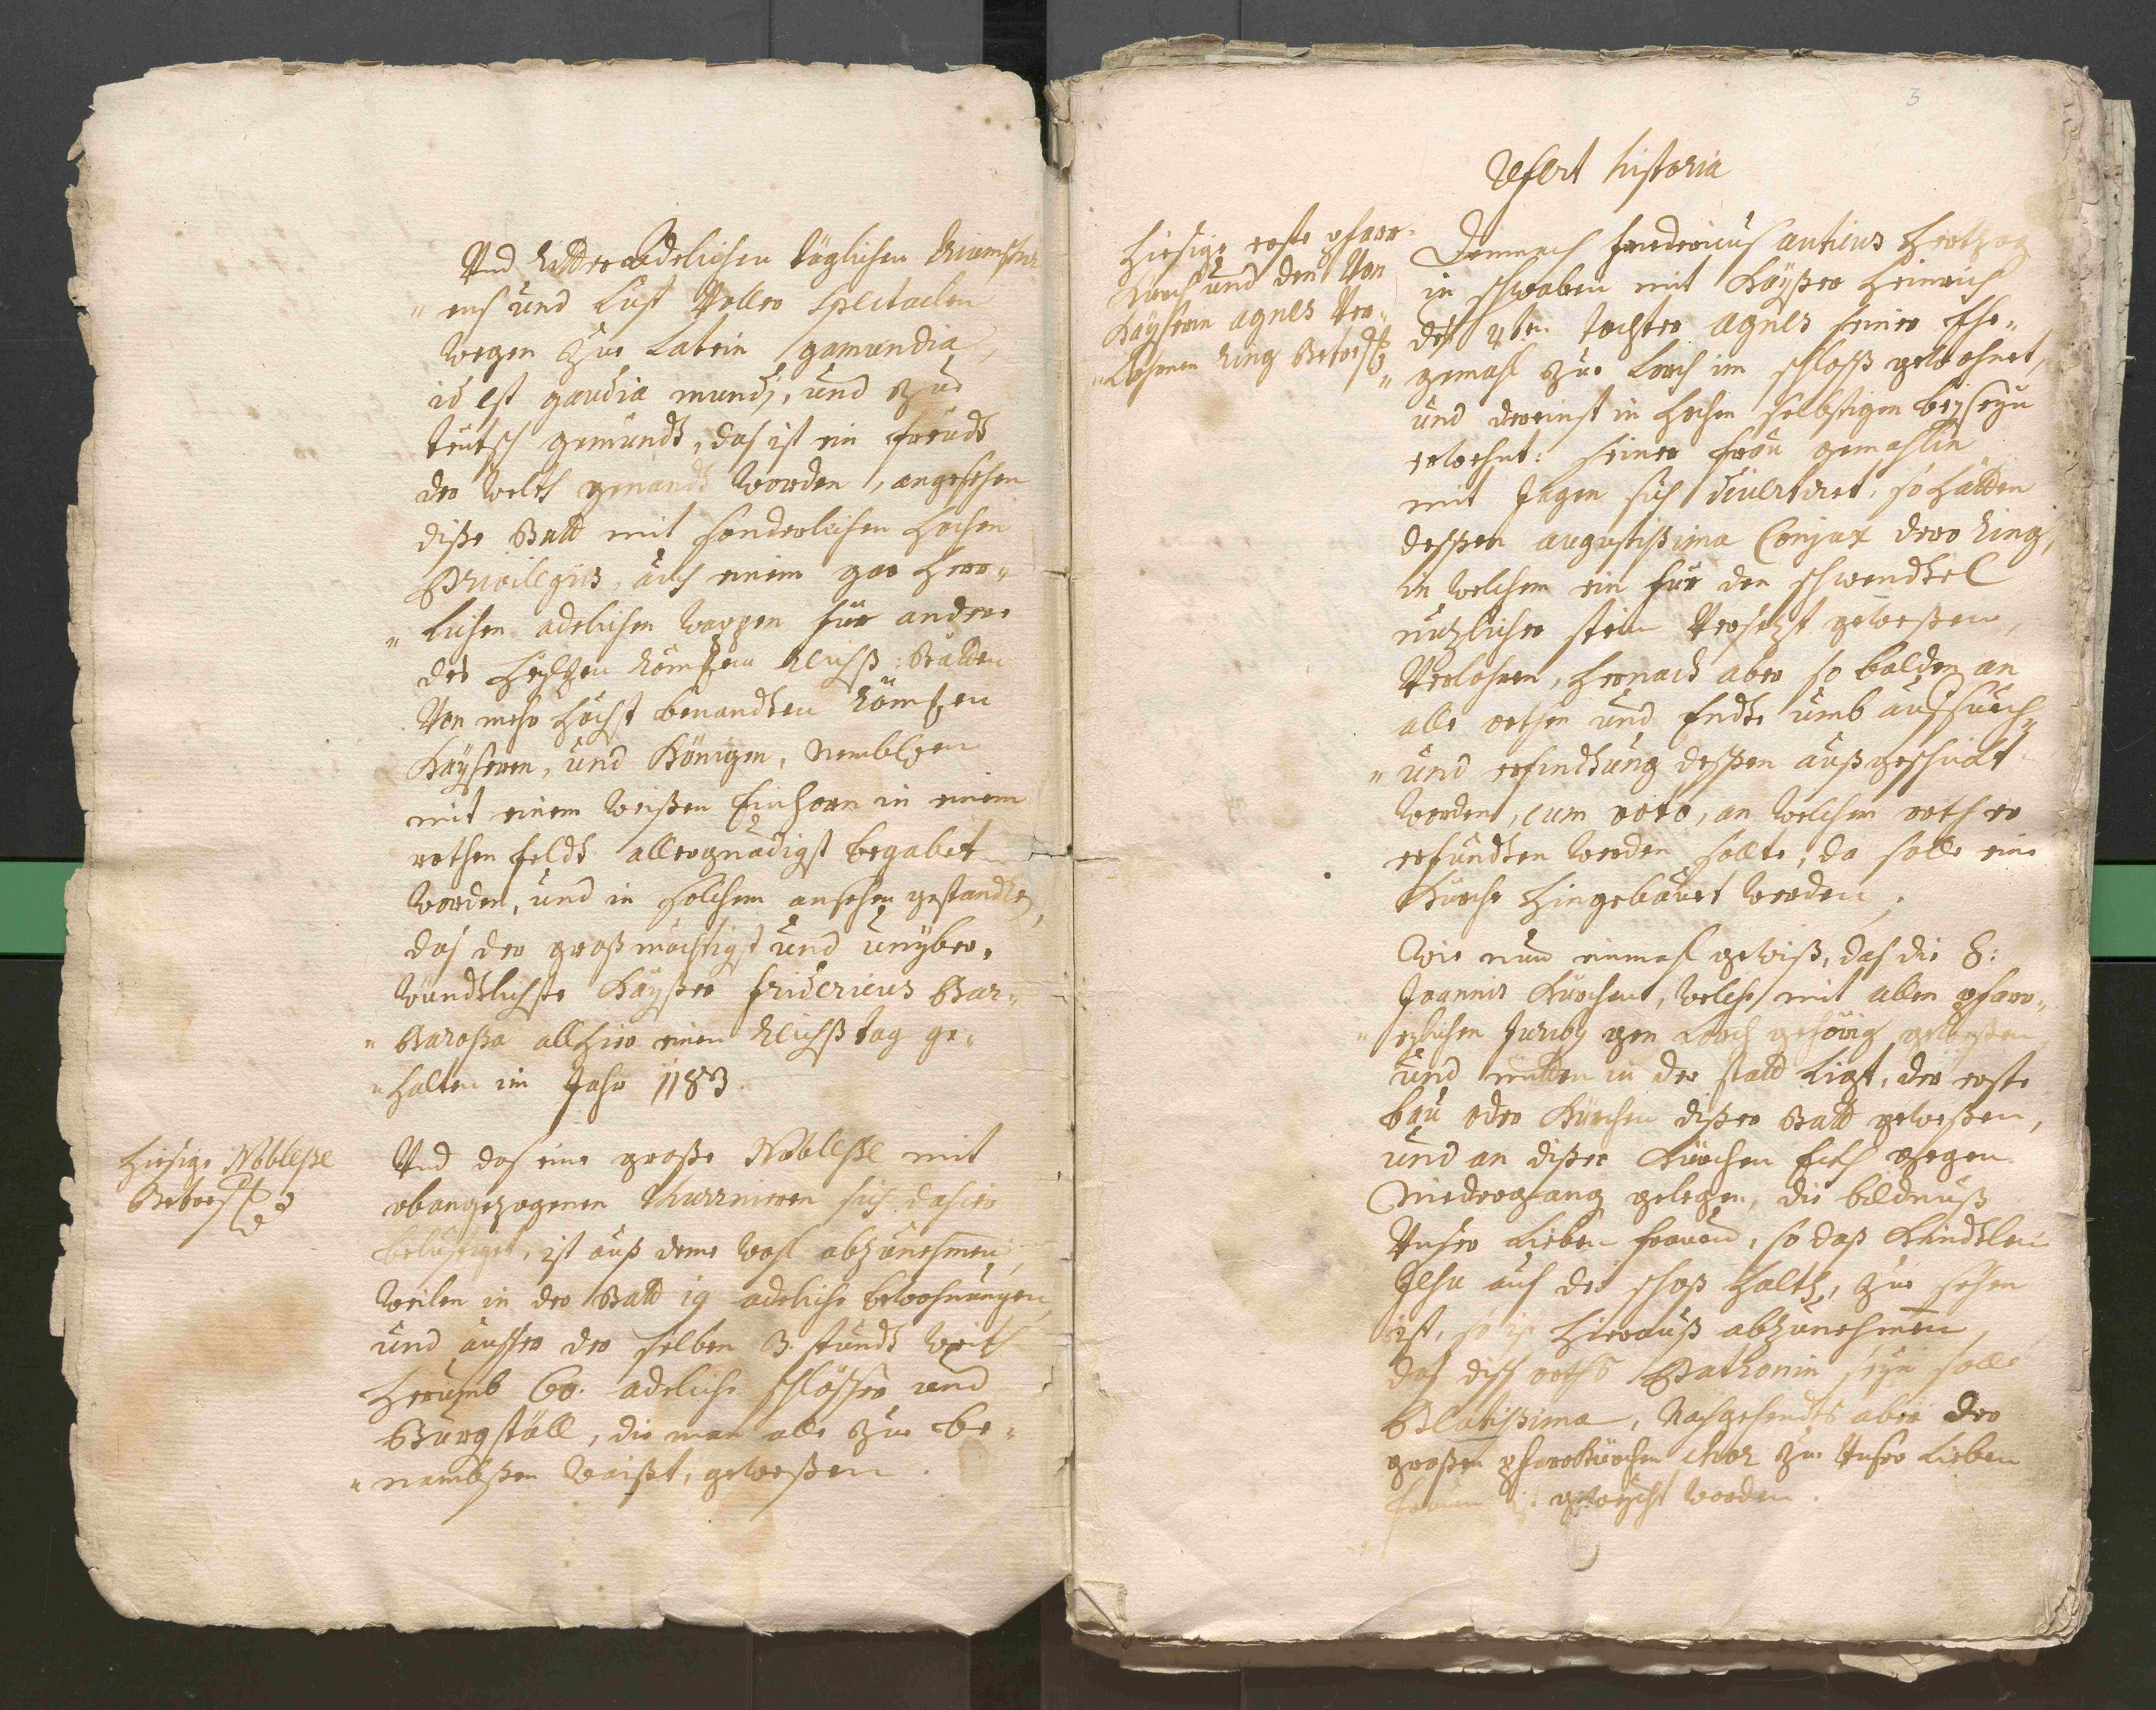 Und Ritter adelichen täglichen Thurnier
„ens und Lust Voller Spectaclen
wegen zue Latein gamundia,
id est gaudia mundj, und zue
teutsch gemündt, das ist ein freudt
der Welth genandt worden, angesehen
diße Statt mit sonderlichen hochen
Privilegiis, auch einem gar herr„
„lichen adelichen wappen für andere
des heylgen Römischen Reichß: Stätten
Von mehr höchst benandten Römischen
Kayseren, und Königen, Nemblichen
mit einem weißen Einhorn in einem
rothen feldt allergnädigst begabet
worden, und in solchem ansehen gestandten,
das der großmächtigst und unyber„
windtlichste Kayßer Fridericus Bar„
„Barossa allhier einen Reichßtag ge„
„halten im Jahr 1183.
Hiesige Noblesse
Betreff:
Und das eine große Noblesse mit
obangezogenen thurnieren sich dahier
belustiget, ist auß deme wohl abzunehmen,
weilen in der Statt 19 adeliche bewohnungen,
und ausser der selben 3. stundt weith
herumb 60. adeliche schlösser und
Burgställ, die man alle zue be„
„nambßen waißt, gewesßen.
3
Refert historia
Hiesige erste pfarr„
Kirch und den Von
Kayserin Agnes Ver„
„lohrnen Ring Betreff:
Demnach Fridericus anticus Hertzog
in schwaben mit Kayßer Heinrich
deß 4ten tochter Agnes seiner Ehe„
„gemahl zue Lorch im schloß gewohnet,
und dereinst in hochen selbstigen beyseyn
erwehnt: seiner frau gemahlin
mit Jagen sich divertiret, so hatten
dessen augustissima Conjux dero Ring,
in welchem ein für den schwindtel
nutzlicher stein Versetzt gewesßen,
Verlohren, hernach aber so balden an
alle orthen und Endte umb aufsuch„
„und erfindtung dessen außgeschickt
worden, cum voto, an welchem orth er
erfundten werden sollte, da solle eine
Kirche hingebauet werden.
Wie nun einmahl gewiß, das die S:
Joannis Kürchen, welche mit allen pfarr„
„eylichen Juribus gen Lorch gehörig gewesßen,
und mitten in der statt ligt, der erste
bau oder Kürchen dißer Statt gewesßen,
und an dißer Kürchen Eckh gegen
Niedergang gelegen, die bildnuß
Unser Lieben frauen, so daß Kindtlein
Jesu auf der schoß halth, zue sehen
ist, so ist hierauß abzunehmen,
das diß orths Patronin seyn solle
Beatissima, Nachgehendts aber der
großen pfarrkürchen Chor zue Unser Lieben
frauen ist geweicht worden.